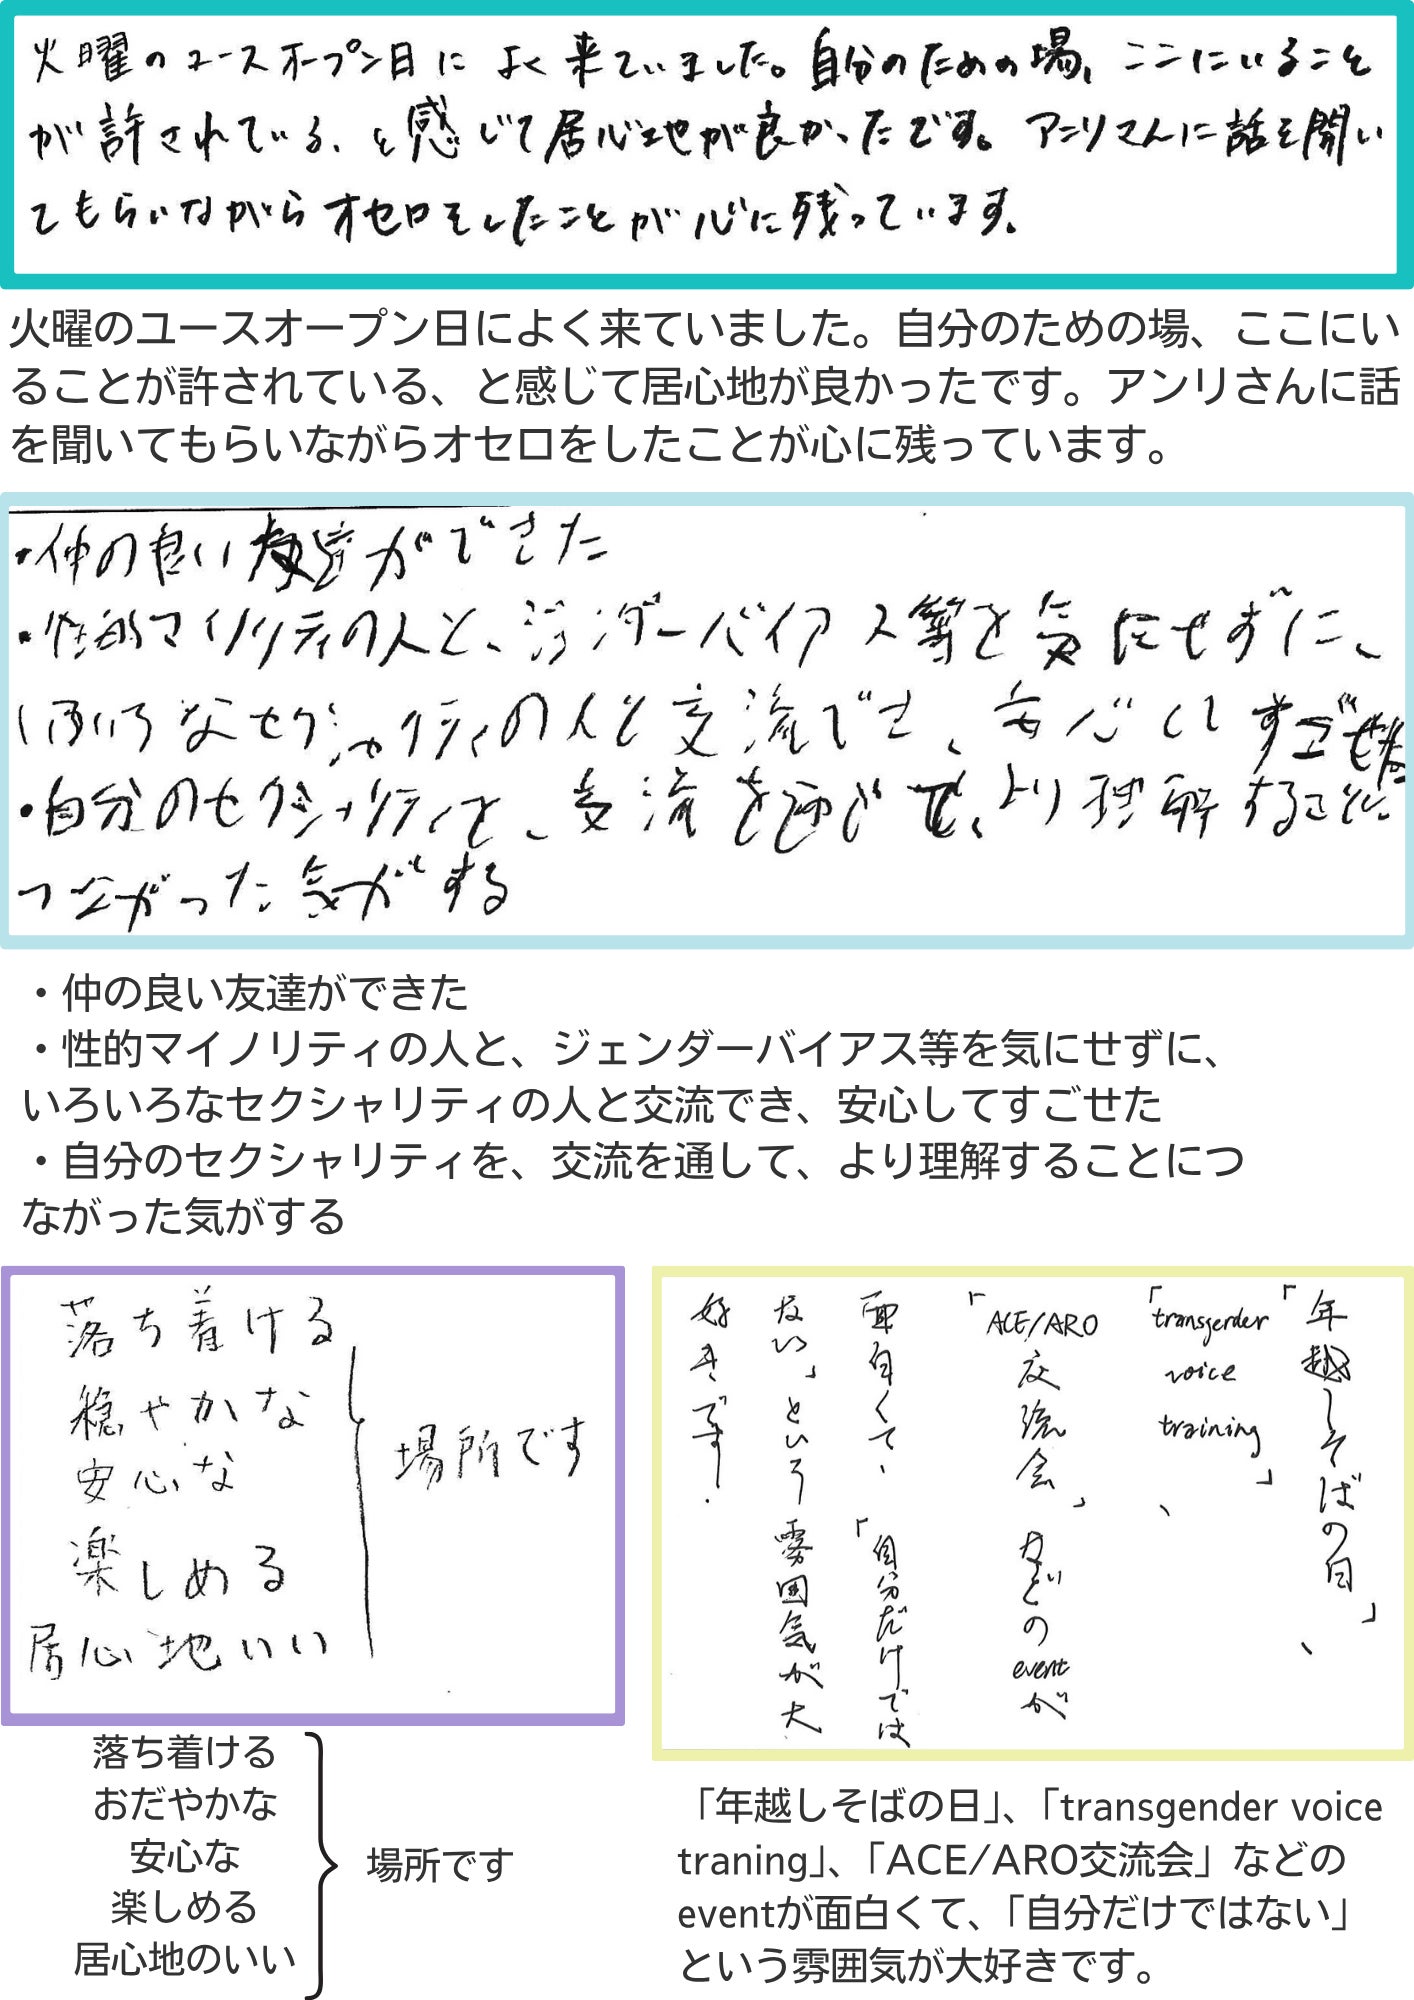 火曜のユースオープン日に よく来ていました。自分のための場、ここにいること
が許されている、と感じて居心地が良かったです。アンリさんに話を聞い
てもらいながらオセロをしたことが心に残っています。
火曜のユースオープン日によく来ていました。自分のための場、ここにい
ることが許されている、と感じて居心地が良かったです。アンリさんに話
を聞いてもらいながらオセロをしたことが心に残っています。
・仲の良い友達ができた
・性的マイノリティの人と、ジェンダーバイアス等を気にせずに、
いろいろなセクシャリティの人と交流でき、安心してすごせた
・自分のセクシャリティを、交流を通じて、より理解することに
つながった気がする
・仲の良い友達ができた
・性的マイノリティの人と、ジェンダーバイアス等を気にせずに、
いろいろなセクシャリティの人と交流でき、安心してすごせた
・自分のセクシャリティを、交流を通して、より理解することにつ
ながった気がする
落ち着ける
穏やかな
安心な
楽しめる
居心地いい
場所です
「年越しそばの日」、
「transgender voice training」、
「ACE/ARO交流会」などのeventが
面白くて、「自分だけでは
ない」という雰囲気が大
好きです！
落ち着ける
おだやかな
安心な
楽しめる
居心地のいい
場所です
「年越しそばの日」、「transgender voice
traning」、「ACE/ARO交流会」などの
eventが面白くて、「自分だけではない」
という雰囲気が大好きです。